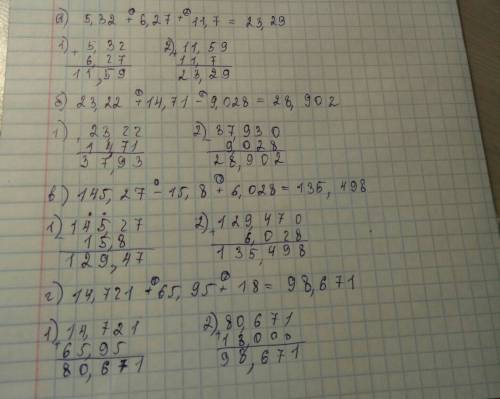 а) 5,32 + 6,27 + 11,7 = 23,29
1) + 5,32 2) + 11,59
6,27 11,7
11,59 23,29
б) 23,22 + 14,71 - 9,028 = 28,902
1) 23,22 2) - 37,930
14,71 9,028
37,93 28,902
в) 145,27 - 15,8 + 6,028 = 135,498
1) - 145,27 2) + 129,470
15,8 6,028
129,47 135,498
г) 14,721 + 65,95 + 18 = 98,671
1) + 14,721 2) + 80,671
65,95 18,000
80,671 98,671